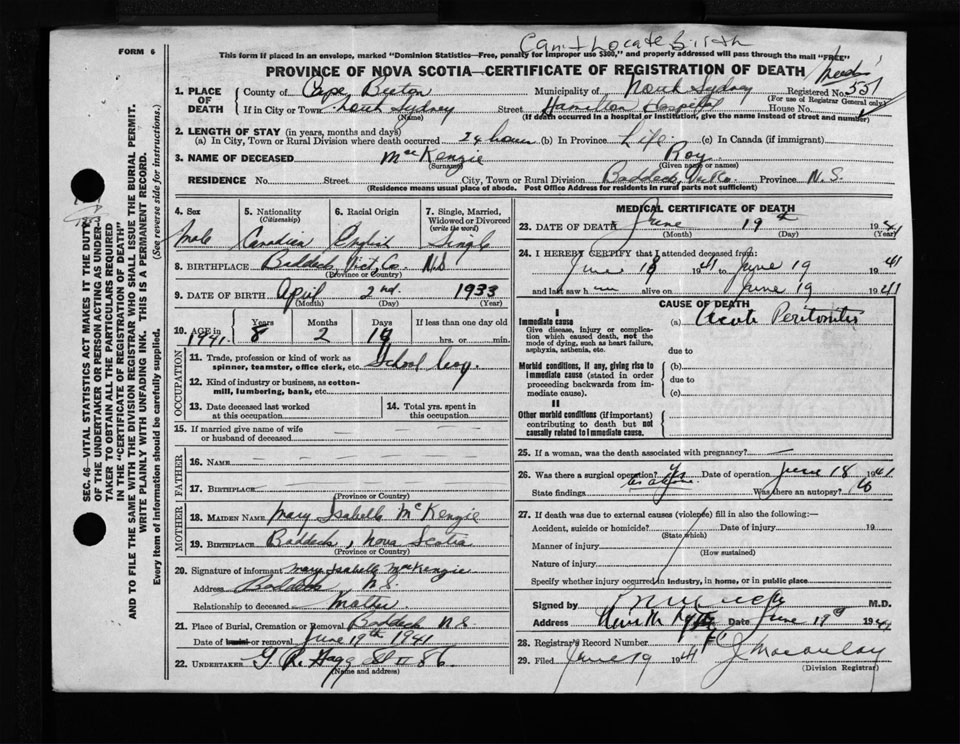 FORM 6
Can't Locate Birth
This form if placed in an envelope, marked "Dominion Statistics—Free, penalty for improper use $300," and properly addressed will pass through the mail "FREE"
PROVINCE OF NOVA SCOTIA—CERTIFICATE OF REGISTRATION OF DEATH
1. PLACE OF DEATH County of Cape Breton Municipality of North Sydney Registered No. 551
(For use of Registrar General only)
If in City or Town North Sydney Street Hamilton Hospital House No.
(Name) (If death occurred in a hospital or institution, give the name instead of street and number)
2. LENGTH OF STAY (in years, months and days)
(a) In City, Town or Rural Division where death occurred 24 hours (b) In Province Life (c) In Canada (if immigrant)
3. NAME OF DECEASED MacKenzie Roy
(Surname) (Given name or names)
RESIDENCE No. Street City, Town or Rural Division Baddeck, Vic. Co. Province N.S.
(Residence means usual place of abode. Post Office Address for residents in rural parts not sufficient)
4. Sex 5. Nationality (Citizenship) 6. Racial Origin 7. Single, Married, Widowed or Divorced (write the word)
Male Canadian English Single
8. BIRTHPLACE Baddeck, Vict. Co. N.S
(Province or Country)
9. DATE OF BIRTH April 2nd. 1933
(Month) (Day) (Year)
10. AGE in Years Months Days If less than one day old
1941. 8 2 hrs. or min.
OCCUPATION
11. Trade, profession or kind of work as spinner, teamster, office clerk, etc. School boy.
12. Kind of industry or business, as cotton-mill, lumbering, bank, etc.
13. Date deceased last worked at this occupation
14. Total yrs. spent in this occupation
15. If married give name of wife or husband of deceased
FATHER
16. NAME
17. BIRTHPLACE
(Province or Country)
MOTHER
18. MAIDEN NAME Mary Isabelle McKenzie
19. BIRTHPLACE Baddeck, Nova Scotia
(Province or Country)
20. Signature of informant Mary Isabelle MacKenzie
Address Baddeck N.S.
Relationship to deceased Mother
21. Place of Burial, Cremation or Removal Baddeck N.S.
Date of burial or removal June 19th 1941
22. UNDERTAKER
(Name and address)
MEDICAL CERTIFICATE OF DEATH
23. DATE OF DEATH June 19th 1941
(Month) (Day) (Year)
24. I HEREBY CERTIFY that I attended deceased from:
June 18 1941 to June 19 1941
and last saw him alive on June 19 1941
CAUSE OF DEATH
I
Immediate cause
Give disease, injury or complication which caused death, not the mode of dying, such as heart failure, asphyxia, asthenia, etc.
(a) Acute Peritonitis
due to
Morbid conditions, if any, giving rise to immediate cause (stated in order proceeding backwards from immediate cause).
(b)
due to
(c)
II
Other morbid conditions (if important) contributing to death but not causally related to immediate cause.
25. If a woman, was the death associated with pregnancy? —
26. Was there a surgical operation? Yes Date of operation June 18 1941
State findings as above Was there an autopsy? No
27. If death was due to external causes (violence) fill in also the following:—
Accident, suicide or homicide? Date of injury 19
(State which)
Manner of injury
(How sustained)
Nature of injury
Specify whether injury occurred in industry, in home, or in public place
Signed by M.D.
Address Date June 19 1941
28. Registrar's Record Number
29. Filed June 19 1941 J Macaulay
(Division Registrar)
SEC. 46—VITAL STATISTICS ACT MAKES IT THE DUTY
OF THE UNDERTAKER OR PERSON ACTING AS UNDER-
TAKER TO OBTAIN ALL THE PARTICULARS REQUIRED
IN THE "CERTIFICATE OF REGISTRATION OF DEATH"
AND TO FILE THE SAME WITH THE DIVISION REGISTRAR WHO SHALL ISSUE THE BURIAL PERMIT.
WRITE PLAINLY WITH UNFADING INK. THIS IS A PERMANENT RECORD.
Every item of information should be carefully supplied. (See reverse side for instructions.)